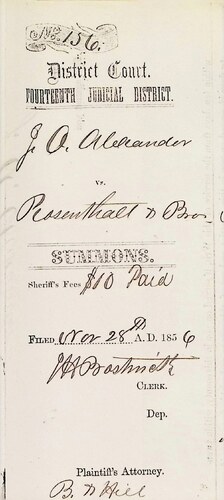 No. 156.
District Court.
FOURTEENTH JUDICIAL DISTRICT.
J. O. Alexander
vs.
Rosenthall & Bros.
SUMMONS.
Sheriff's Fees $10 Paid
FILED Nov 28th A. D. 1856
J H Bostwick
CLERK.
Dep.
Plaintiff's Attorney.
B. D Hill